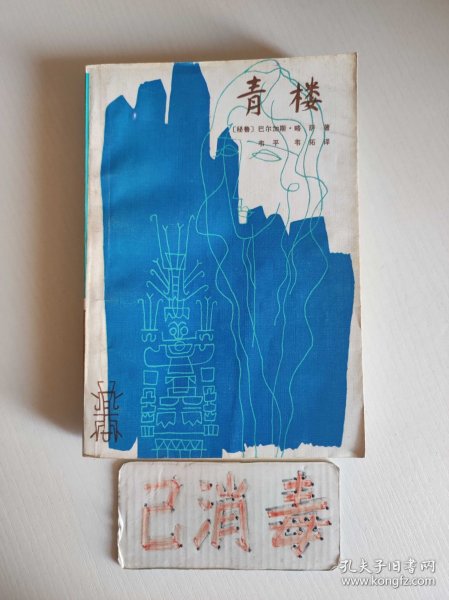 青楼
〔秘鲁〕巴尔加斯·略萨 著
韦平 韦拓 译
已消毒
孔夫子旧书网
www.kongfz.com